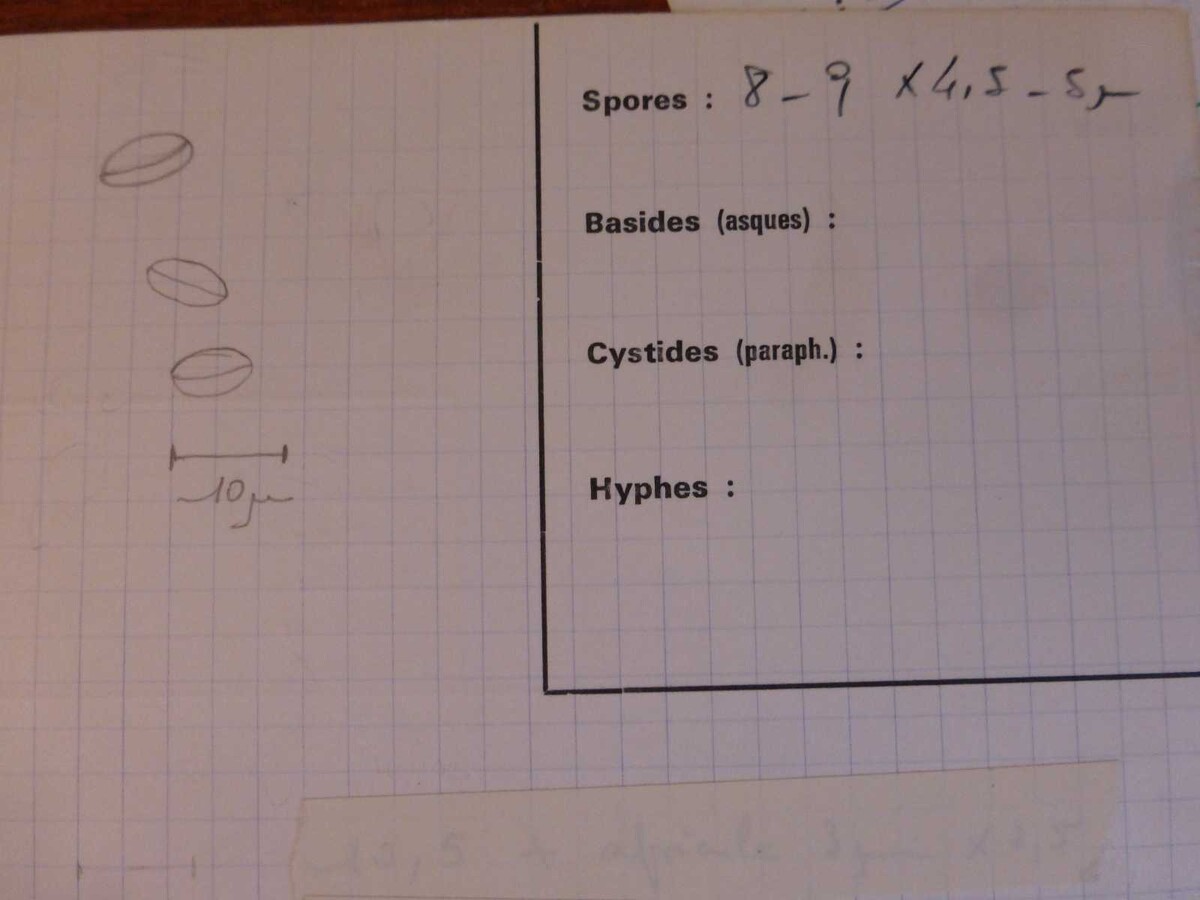 Spores : 8 - 9 x 4,5 - 5 µ
Basides (asques) :
Cystides (paraph.) :
10 µ
Hyphes :